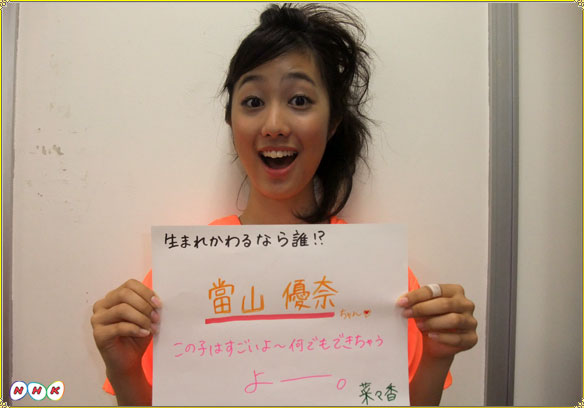 生まれかわるなら誰!?
當山 優奈
ちゃん♥
この子はすごいよ〜何でもできちゃう
よーー。
菜々香
NHK